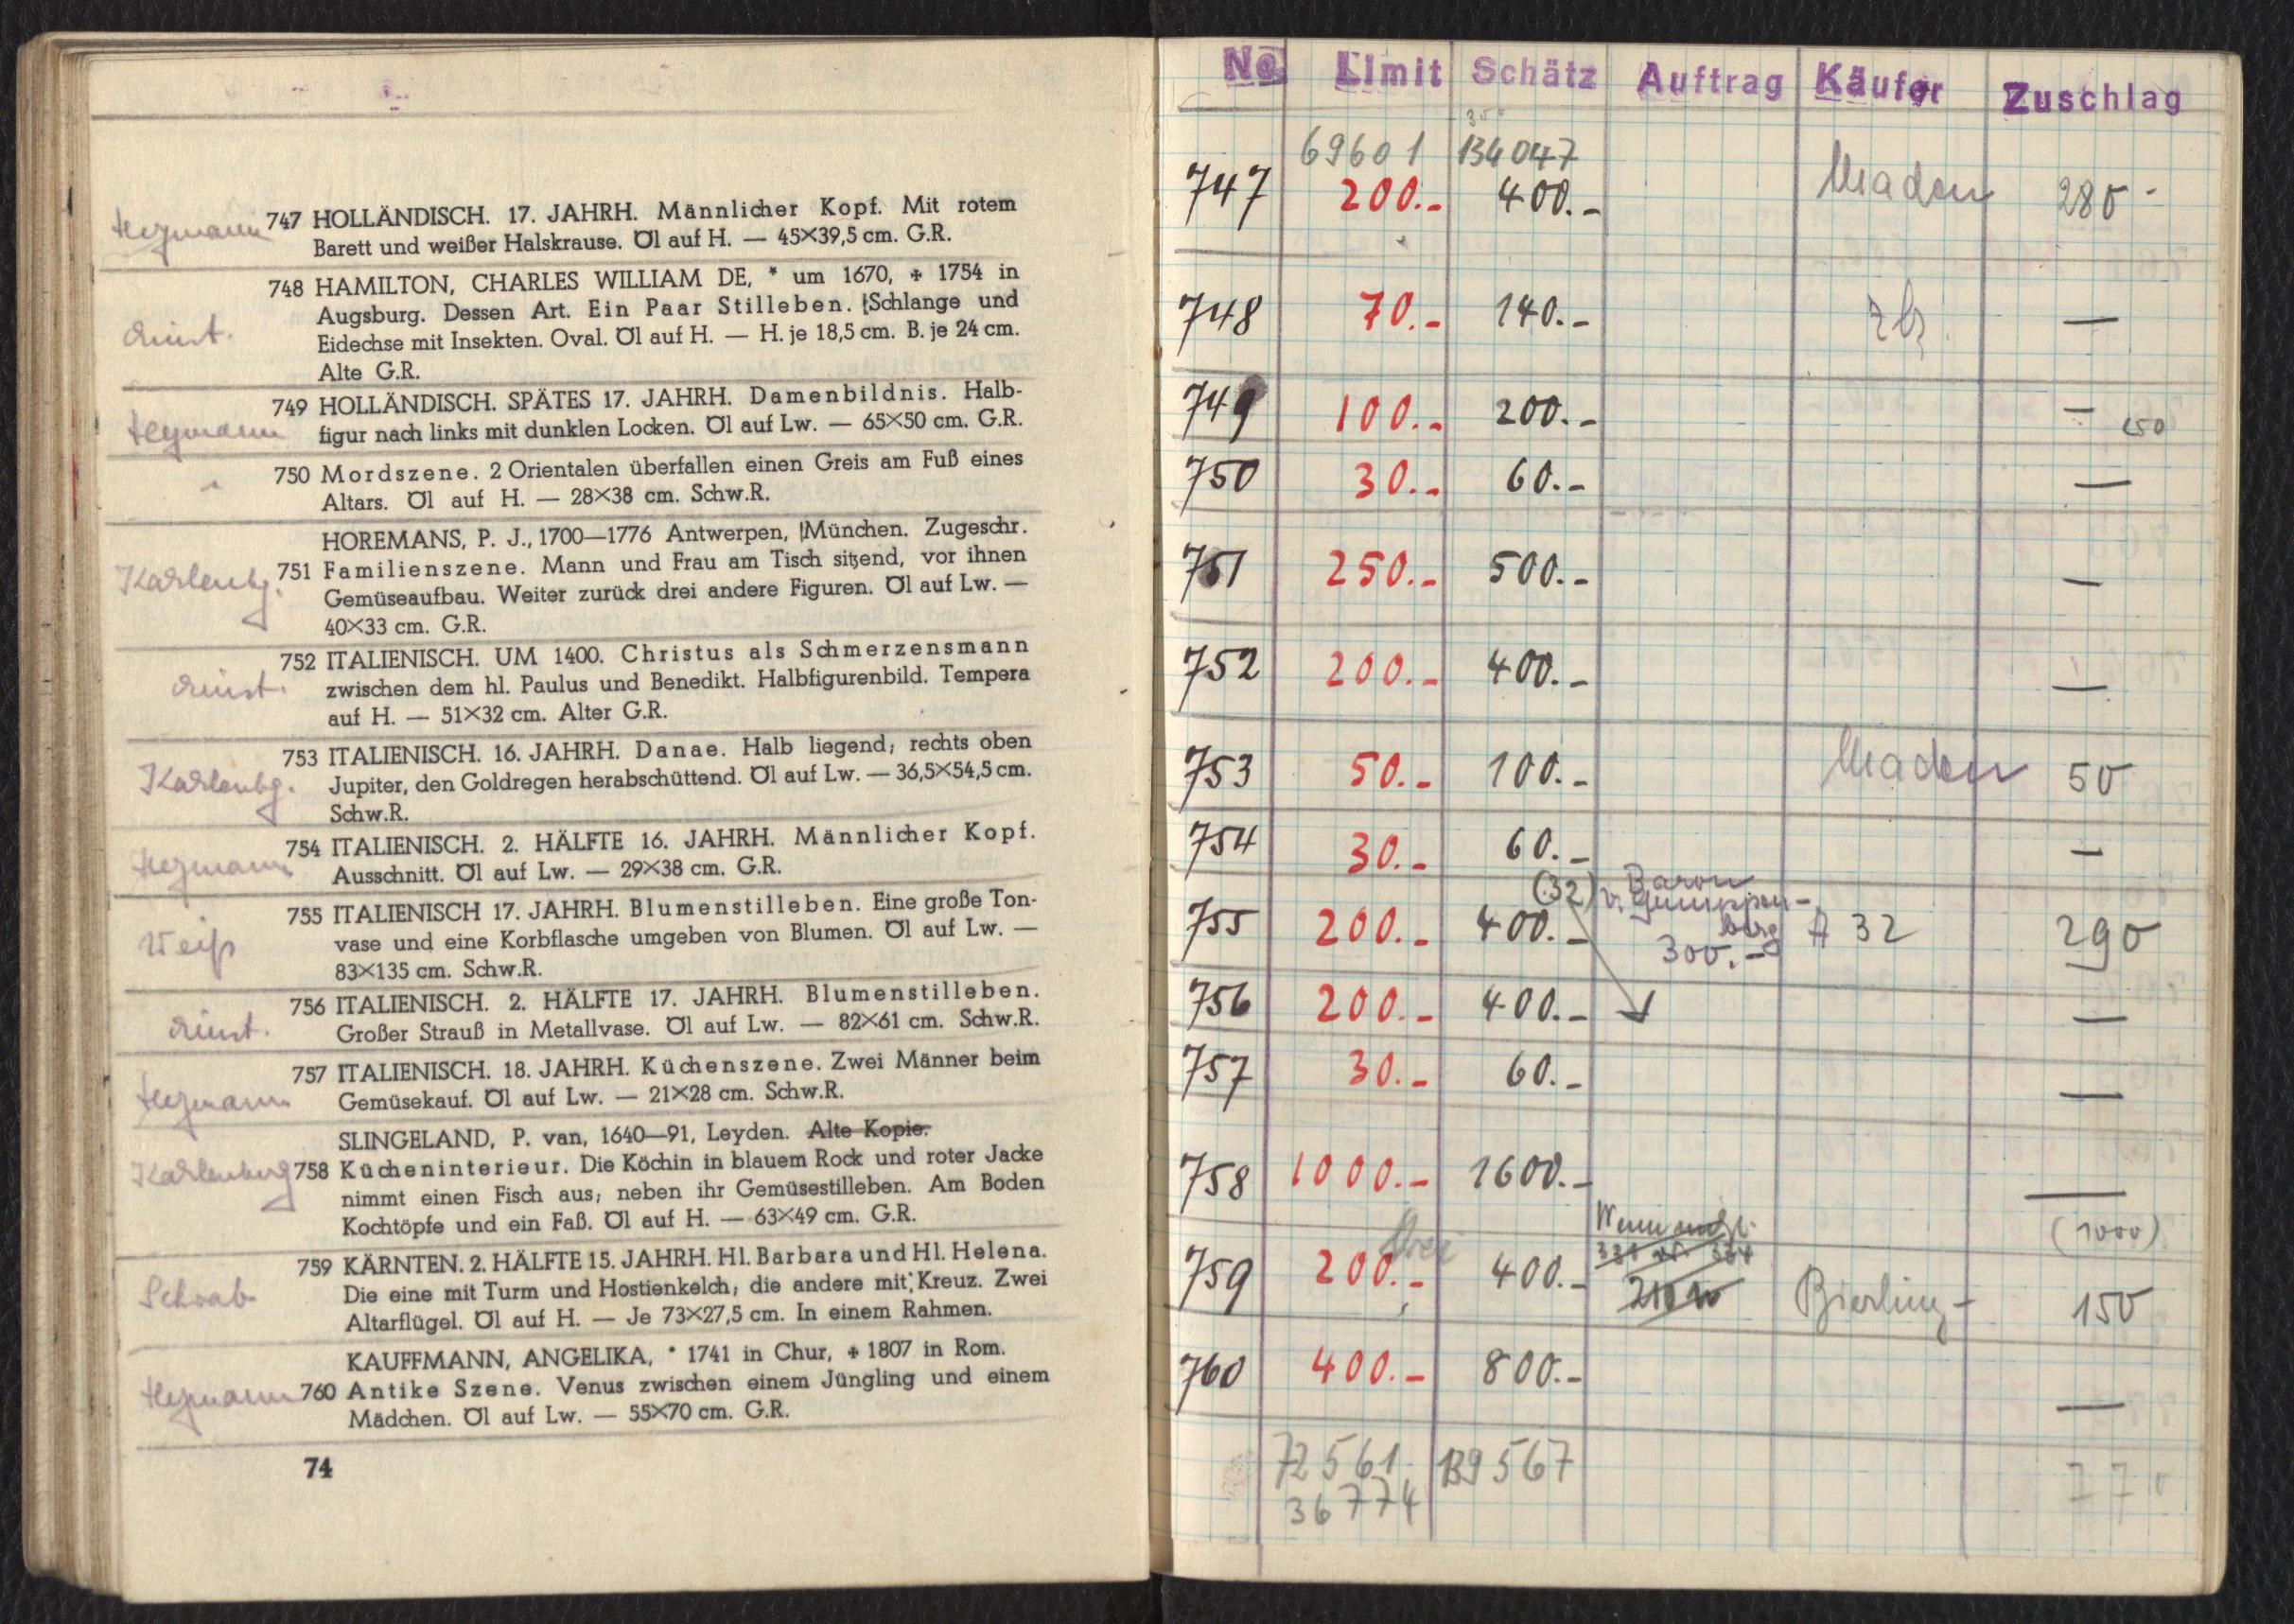 Heymann
747 HOLLÄNDISCH. 17. JAHRH. Männlicher Kopf. Mit rotem
Barett und weißer Halskrause. Öl auf H. — 45×39,5 cm. G.R.
748 HAMILTON, CHARLES WILLIAM DE, * um 1670, ✢ 1754 in
Augsburg. Dessen Art. Ein Paar Stilleben. Schlange und
Eidechse mit Insekten. Oval. Öl auf H. — H. je 18,5 cm. B. je 24 cm.
Alte G.R.
Heymann
749 HOLLÄNDISCH. SPÄTES 17. JAHRH. Damenbildnis. Halb-
figur nach links mit dunklen Locken. Öl auf Lw. — 65×50 cm. G.R.
750 Mordszene. 2 Orientalen überfallen einen Greis am Fuß eines
Altars. Öl auf H. — 28×38 cm. Schw.R.
HOREMANS, P. J., 1700—1776 Antwerpen, München. Zugeschr.
Karlenbg.
751 Familienszene. Mann und Frau am Tisch sitzend, vor ihnen
Gemüseaufbau. Weiter zurück drei andere Figuren. Öl auf Lw. —
40×33 cm. G.R.
752 ITALIENISCH. UM 1400. Christus als Schmerzensmann
zwischen dem hl. Paulus und Benedikt. Halbfigurenbild. Tempera
auf H. — 51×32 cm. Alter G.R.
Karlenbg.
753 ITALIENISCH. 16. JAHRH. Danae. Halb liegend; rechts oben
Jupiter, den Goldregen herabschüttend. Öl auf Lw. — 36,5×54,5 cm.
Schw.R.
Heymann
754 ITALIENISCH. 2. HÄLFTE 16. JAHRH. Männlicher Kopf.
Ausschnitt. Öl auf Lw. — 29×38 cm. G.R.
Weiß
755 ITALIENISCH 17. JAHRH. Blumenstilleben. Eine große Ton-
vase und eine Korbflasche umgeben von Blumen. Öl auf Lw. —
83×135 cm. Schw.R.
756 ITALIENISCH. 2. HÄLFTE 17. JAHRH. Blumenstilleben.
Großer Strauß in Metallvase. Öl auf Lw. — 82×61 cm. Schw.R.
Heymann
757 ITALIENISCH. 18. JAHRH. Küchenszene. Zwei Männer beim
Gemüsekauf. Öl auf Lw. — 21×28 cm. Schw.R.
SLINGELAND, P. van, 1640—91, Leyden. Alte Kopie.
Karlenberg
758 Kücheninterieur. Die Köchin in blauem Rock und roter Jacke
nimmt einen Fisch aus; neben ihr Gemüsestilleben. Am Boden
Kochtöpfe und ein Faß. Öl auf H. — 63×49 cm. G.R.
Schwab
759 KÄRNTEN. 2. HÄLFTE 15. JAHRH. Hl. Barbara und Hl. Helena.
Die eine mit Turm und Hostienkelch; die andere mit Kreuz. Zwei
Altarflügel. Öl auf H. — Je 73×27,5 cm. In einem Rahmen.
KAUFFMANN, ANGELIKA, * 1741 in Chur, ✢ 1807 in Rom.
Heymann
760 Antike Szene. Venus zwischen einem Jüngling und einem
Mädchen. Öl auf Lw. — 55×70 cm. G.R.
74
No Limit Schätz Auftrag Käufer Zuschlag
69601 134047
747 200.- 400.- 280-
748 70.- 140.- —
749 100.- 200.- — 150
750 30.- 60.- —
751 250.- 500.- —
752 200.- 400.- —
753 50.- 100.- 50
754 30.- 60.- —
(32) Baron
v. Gumppen-
berg
755 200.- 400.- 300.- A 32 290
756 200.- 400.- —
757 30.- 60.- —
758 1000.- 1600.- —
(1000)
759 200.- 400.- Bierling- 150
760 400.- 800.- —
72561 139567 770
36774